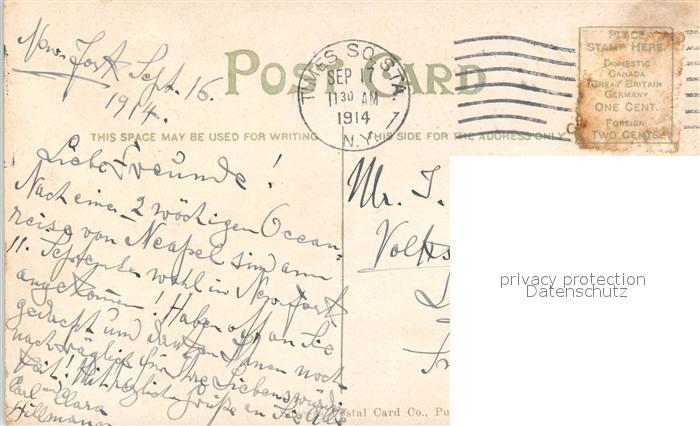 New York Sept. 16.
1914.
POST CARD
TIMES SQ. STA.
SEP 17
11 30 AM
1914
N.Y.
PLACE
STAMP HERE
DOMESTIC
CANADA
GREAT BRITAIN
GERMANY
ONE CENT.
FOREIGN
TWO CENTS.
THIS SPACE MAY BE USED FOR WRITING
THIS SIDE FOR THE ADDRESS ONLY
Liebe Freunde!
Nach einer 2 wöchigen Ocean-
reise von Neapel sind am
11. September wohl in New York
angekommen! Haben oft an Sie
gedacht und danken Ihnen noch
nachträglich für Ihre Liebenswürdig
keit! Mit herzlichen Grüße an Sie Alle
Carl und Clara
Hillmann
Mr. J.
Volks
privacy protection
Datenschutz
Postal Card Co., Pu